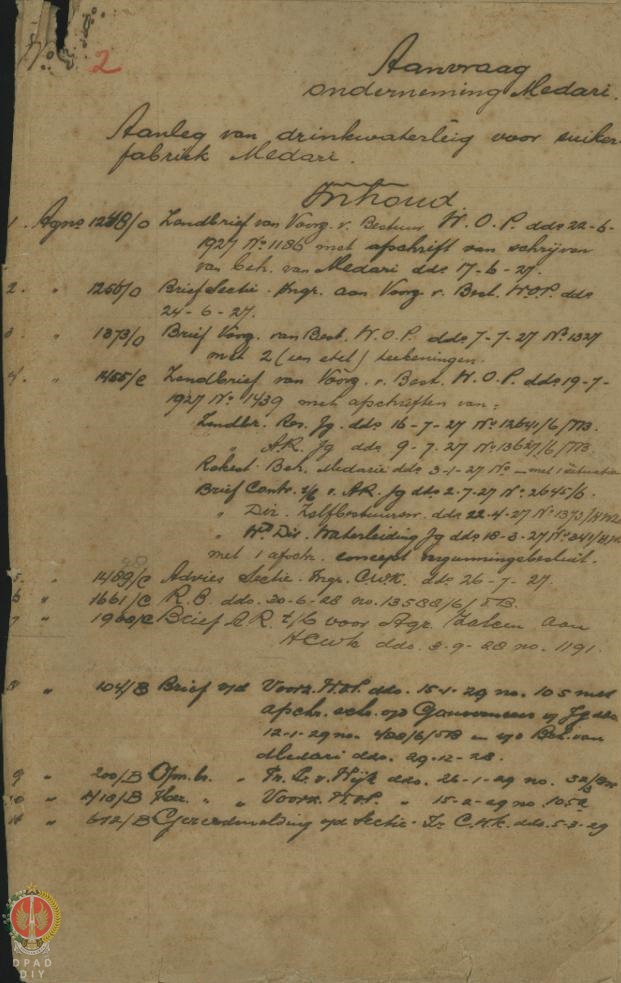 No. 2
Aanvraag
onderneming Medari.
Aanleg van drinkwaterleig voor suiker-
fabriek Medari.
Inhoud
1. Agno 1248/O Zendbrief van Voorz. v. Bestuur W.O.P. ddo 22-6-
1927 No 1186 met afschrift van schrijven
van beh. van Medari ddo 17-6-27.
2. " 1256/O Brief Sectie-Ingr. aan Voorz. v. Best. W.O.P. ddo
24-6-27.
3 " 1373/O Brief Voorz. van Best. W.O.P. ddo 7-7-27 No 1327
met 2 (een stel) teekeningen.
4. " 1455/C Zendbrief van Voorz. v. Best. W.O.P. ddo 19-7-
1927 No 1439 met afschriften van:
Zendbr. Res. Jg. ddo 16-7-27 No 12641/6/
" A.R. Jg ddo 9-7-27 No
Rekest Beh. Medarie ddo 3-1-27 No — met 1 situatie
Brief Contr. t/b v. A.R. Jg ddo 2-7-27 No 2645/6.
" Dir. Zelfbestuursw. ddo 22-4-27 No 1373/
" Wd Dir. Waterleiding Jg ddo 18-3-27 No 341/
met 1 afschr. concept vergunningsbesluit.
5 " 1489/C Advies Sectie-Ingr. ddo 26-7-27.
6 " 1661/C R.B. ddo. 30-6-28 no. 13588/6/
7 " 1900/C Brief A.R. t/b voor Agr. Zaken aan
ddo. 3-9-28 no. 1191.
8 " 104/B Brief v/d Voorz. ddo. 15-1-29 no. 105 met
afschr. schr. v/d Gouverneur v/ Jg ddo
12-1-29 no. en v/d Beh. van
Medari ddo. 29-12-28.
9 " 200/B " ddo. 26-1-29 no.
10 " 413/B " " Voorz. " 15-2-29 no. 1052
11 " 612/B Gereedmelding v/d Sectie-Ir ddo. 5-3-29
DPAD
DIY